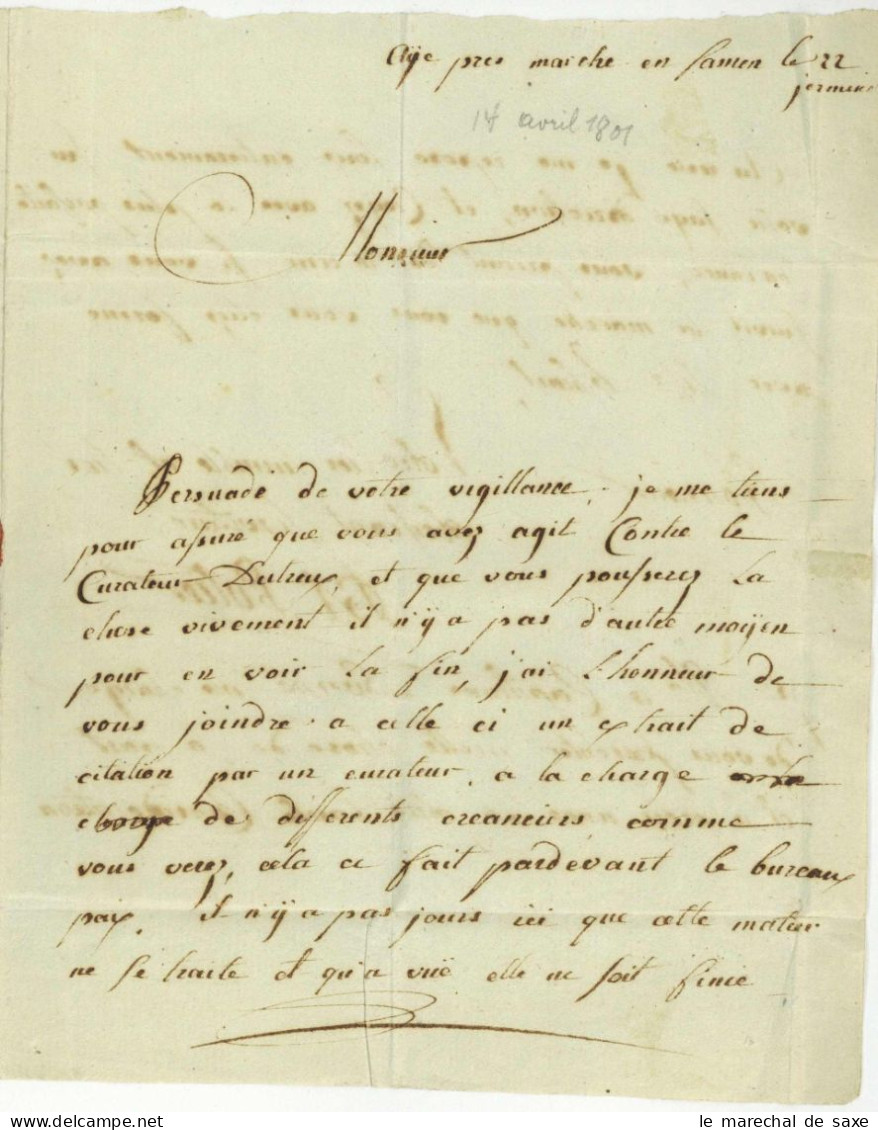 Aÿe pres marche en famen le 22
jerminal
14 avril 1801
Monsieur
Persuadé de votre vigillance, je me tiens
pour assuré que vous avez agit Contre le
Curateur Dutreux, et que vous pousserez La
chose vivement il n'ÿ a pas d'autre moÿen
pour en voir La fin, j'ai L'honneur de
vous joindre a celle ci un extrait de
citation par un curateur, a la charge
de differents creanciers comme
vous verez, cela ce fait pardevant le bureaux
paix. il n'ÿ a pas jours ici que cette matier
ne se traite et qu'a vuë elle ne soit finie
le marechal de saxe